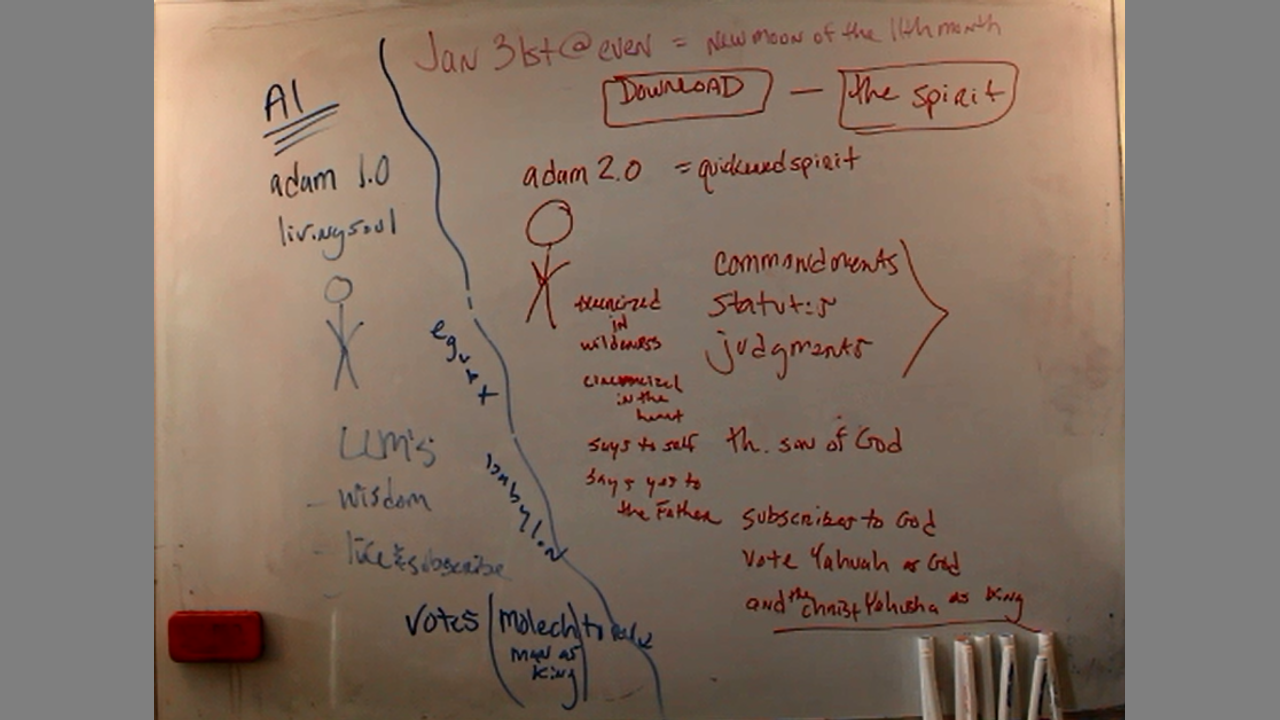 Jan 31st @ even = New moon of the 11th month
DOWNLOAD — the spirit
AI
adam 1.0
living soul
LLM's
- wisdom
- like & subscribe
votes (Molech) to rule
man as
king
egypt
babylon
adam 2.0 = quickened spirit
in
wilderness
circumcized
in the
heart
says to self
says yes to
the Father
commandments
statutes
judgments
th. son of God
subscribes to God
vote Yahuah as God
and the Christ Yahusha as King